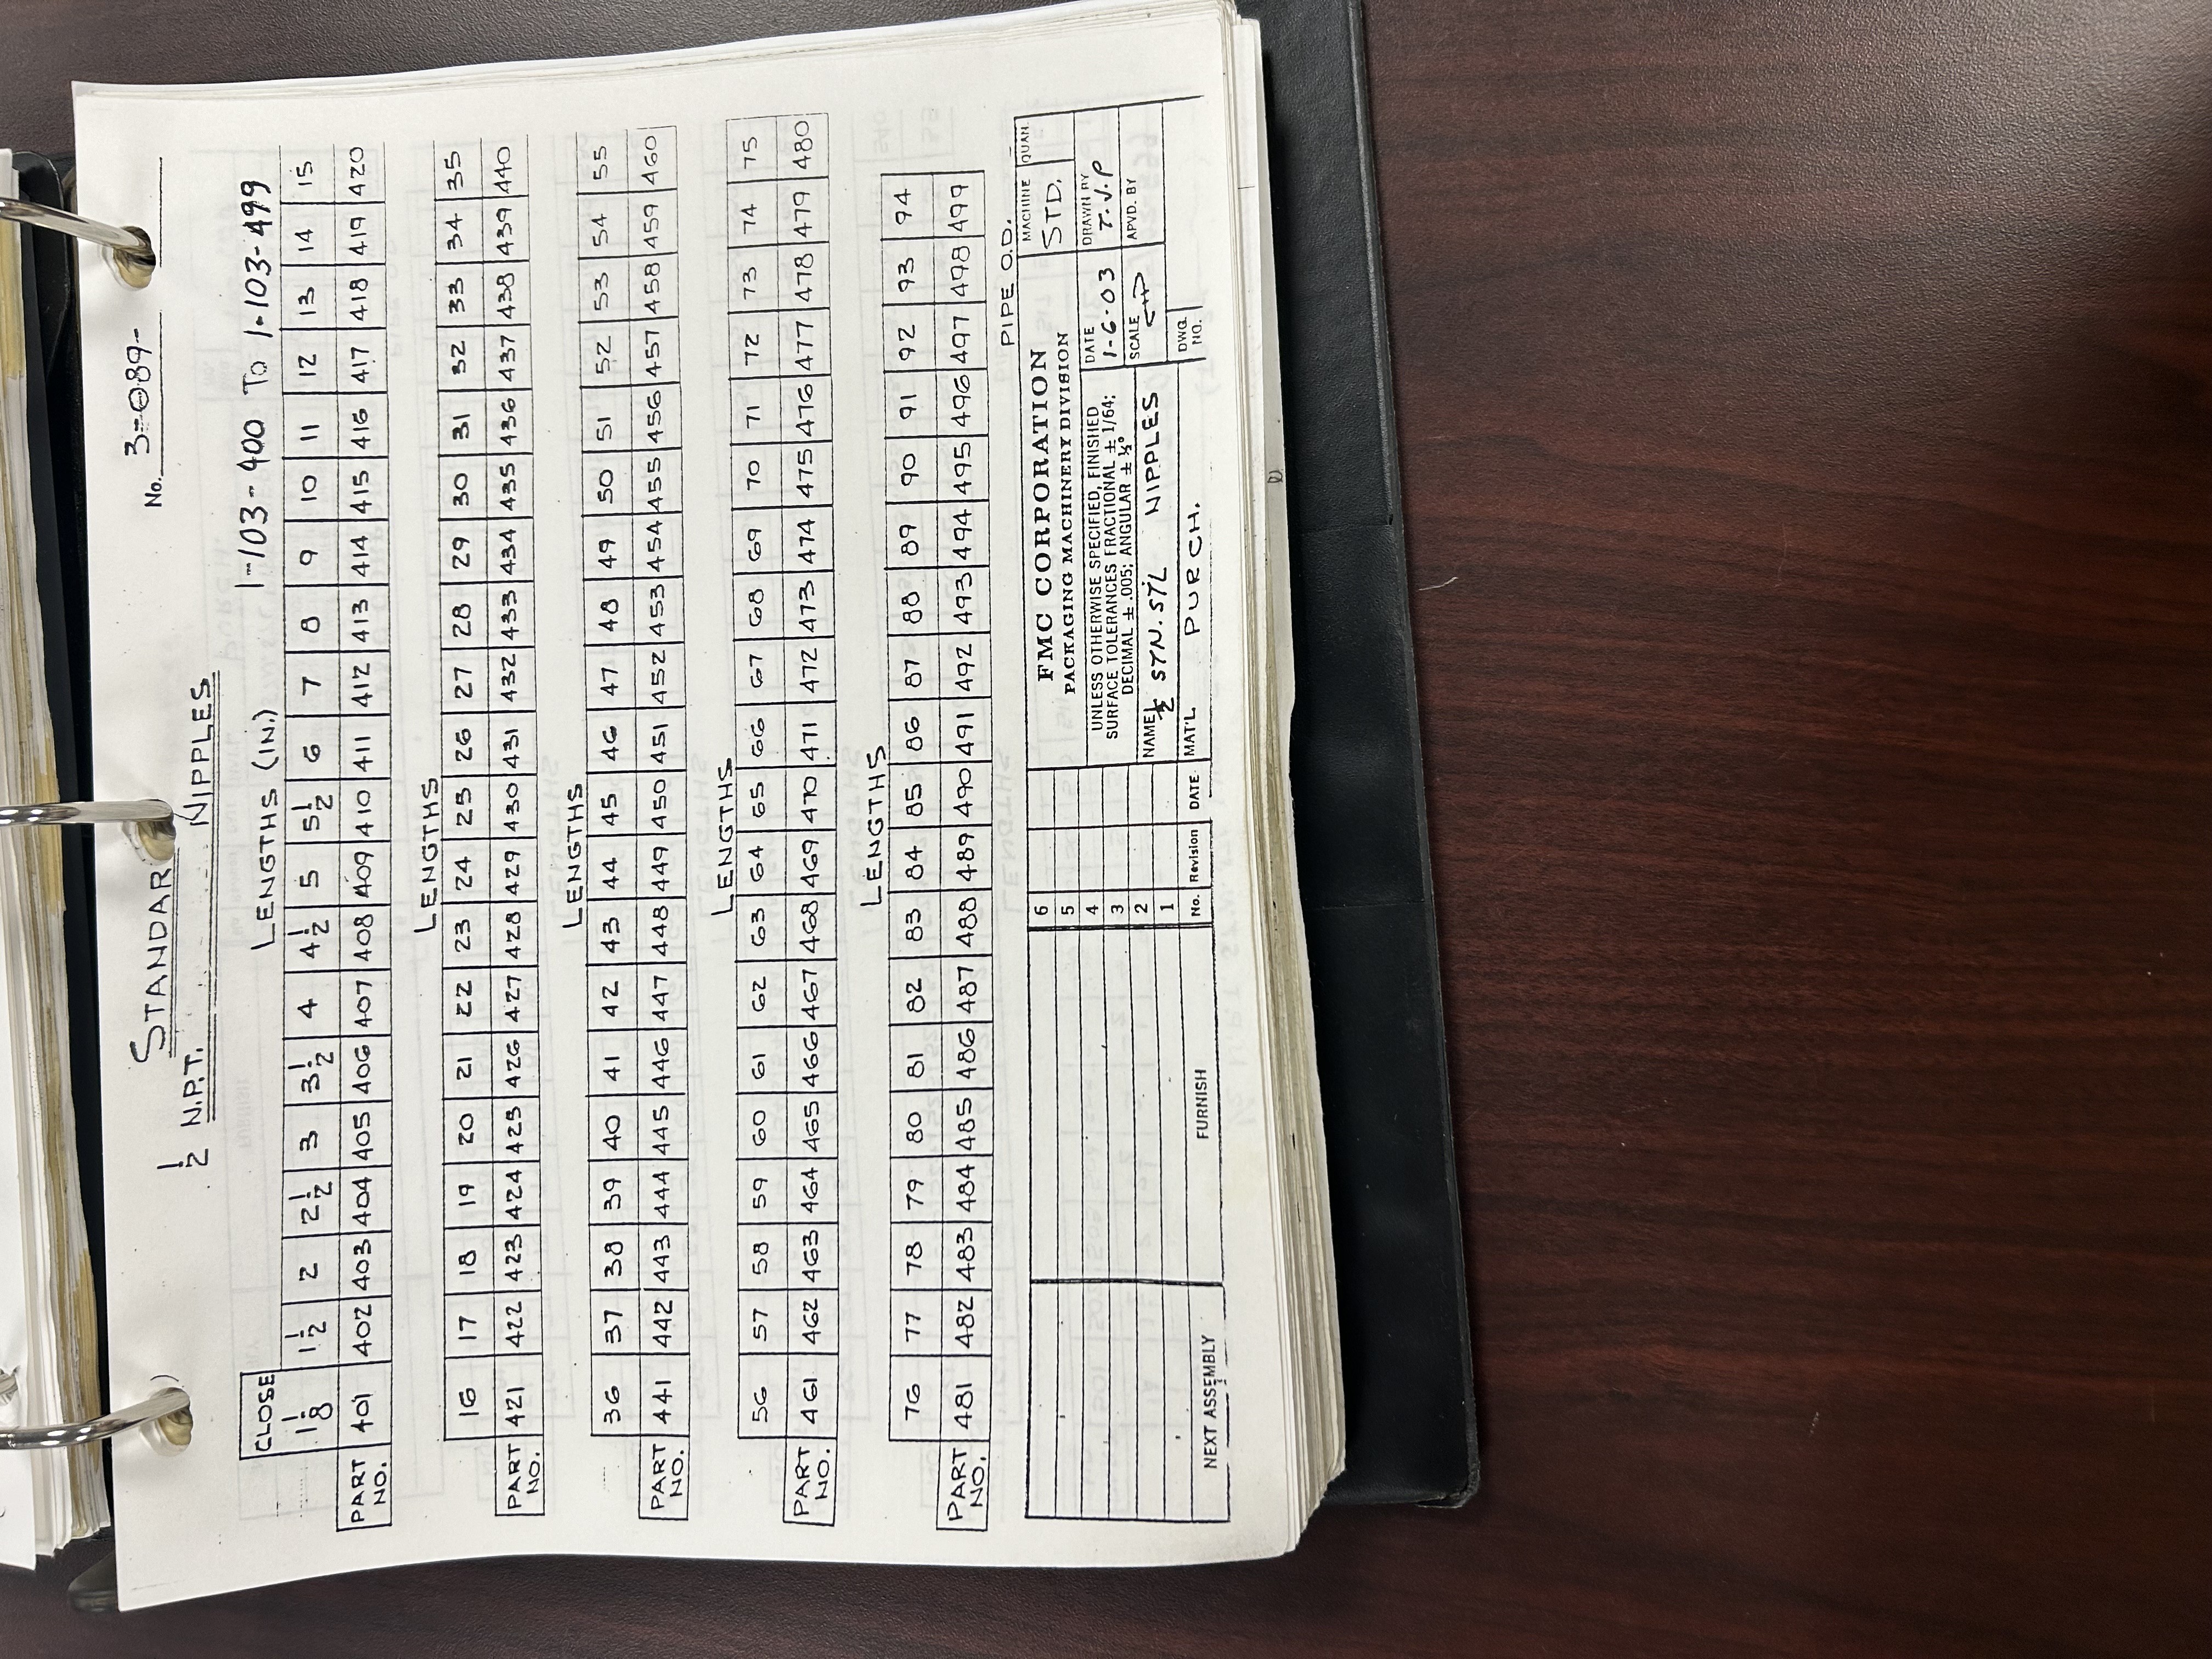 STANDAR
No. 3-089-
1/2 N.P.T. NIPPLES
1-103-400 To 1-103-499
CLOSE LENGTHS (IN.)
1 1/8 1 1/2 2 2 1/2 3 3 1/2 4 4 1/2 5 5 1/2 6 7 8 9 10 11 12 13 14 15
PART NO. 401 402 403 404 405 406 407 408 409 410 411 412 413 414 415 416 417 418 419 420
LENGTHS
16 17 18 19 20 21 22 23 24 25 26 27 28 29 30 31 32 33 34 35
PART NO. 421 422 423 424 425 426 427 428 429 430 431 432 433 434 435 436 437 438 439 440
LENGTHS
36 37 38 39 40 41 42 43 44 45 46 47 48 49 50 51 52 53 54 55
PART NO. 441 442 443 444 445 446 447 448 449 450 451 452 453 454 455 456 457 458 459 460
LENGTHS
56 57 58 59 60 61 62 63 64 65 66 67 68 69 70 71 72 73 74 75
PART NO. 461 462 463 464 465 466 467 468 469 470 471 472 473 474 475 476 477 478 479 480
LENGTHS
76 77 78 79 80 81 82 83 84 85 86 87 88 89 90 91 92 93 94
PART NO. 481 482 483 484 485 486 487 488 489 490 491 492 493 494 495 496 497 498 499
PIPE O.D.
6
5
4
3
2
1
No. Revision DATE
NEXT ASSEMBLY
FURNISH
FMC CORPORATION
PACKAGING MACHINERY DIVISION
MACHINE STD.
QUAN.
UNLESS OTHERWISE SPECIFIED, FINISHED
SURFACE TOLERANCES FRACTIONAL ± 1/64;
DECIMAL ± .005; ANGULAR ± ½°
DATE 1-6-03
DRAWN BY T.J.P
NAME 1/2 STN. STL NIPPLES
SCALE
APVD. BY
MAT'L PURCH.
DWG. NO.